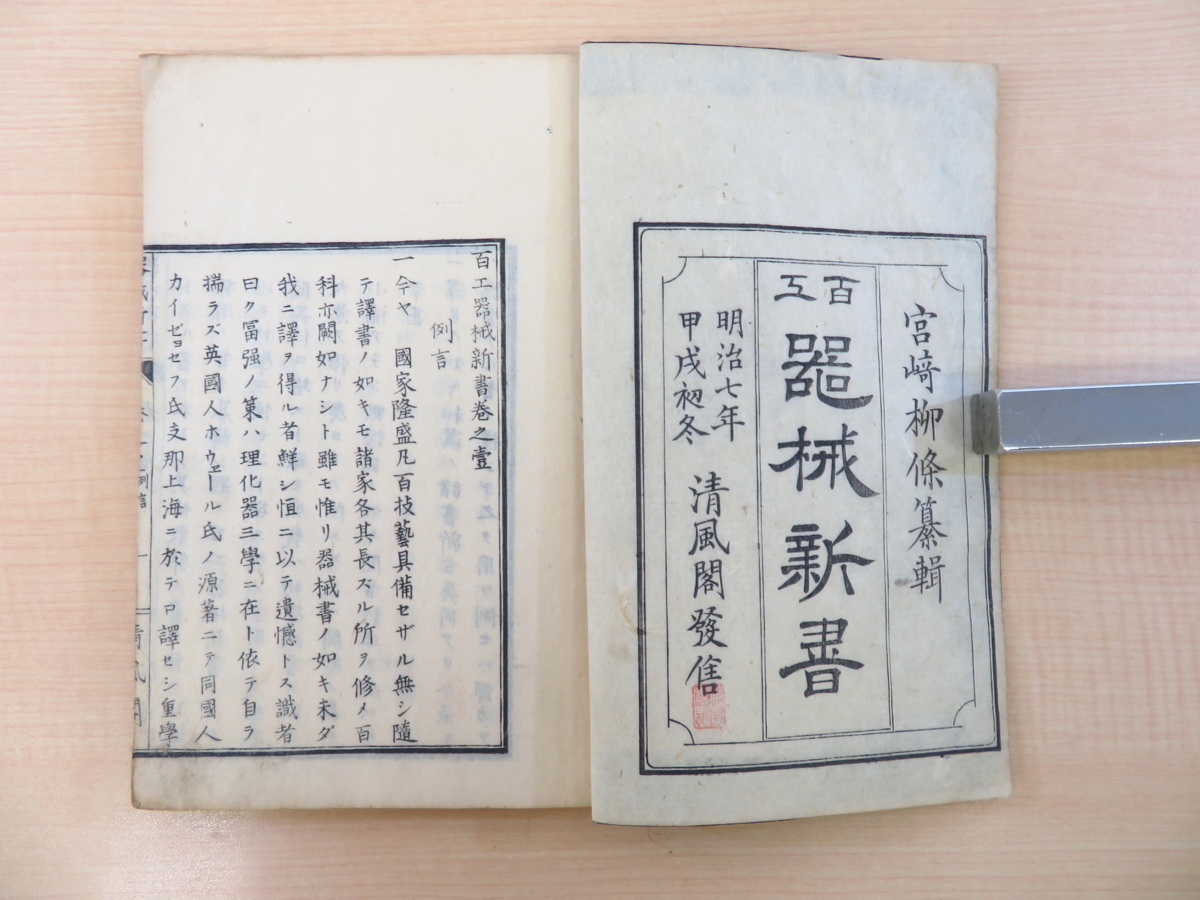 宮﨑柳條纂輯
百工
器械新書
明治七年
甲戌初冬
清風閣發售
百工器械新書卷之壹
例言
一今ヤ 國家隆盛凡百技藝具備セザル無シ隨
テ譯書ノ如キモ諸家各其長ズル所ヲ修メ百
科亦闕如ナシト雖モ惟リ器械書ノ如キ未ダ
我ニ譯ヲ得ル者鮮シ恒ニ以テ遺憾トス識者
曰ク冨强ノ策ハ理化器三學ニ在ト依テ自ラ
揣ラズ英國人ホウエール氏ノ源著ニテ同國人
カイゼヨセフ氏支那上海ニ於テロ譯セシ重學